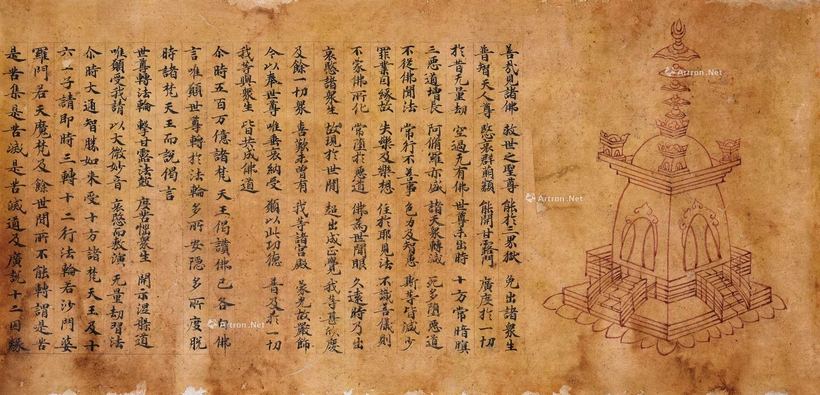 善哉見諸佛 救世之聖尊 能於三界獄 免出諸衆生
普智天人尊 愍哀群萌類 能開甘露門 廣度於一切
於昔无量劫 空過无有佛 世尊未出時 十方常暗瞑
三惡道增長 阿脩羅亦盛 諸天衆轉減 死多墮惡道
不從佛聞法 常行不善事 色力及智慧 斯等皆減少
罪業因緣故 失樂及樂想 住於耶見法 不識善儀則
不蒙佛所化 常墮於惡道 佛為世間眼 久遠時乃出
哀愍諸衆生 故現於世間 超出成正覺 我等甚欣慶
及餘一切衆 喜歎未曾有 我等諸宮殿 蒙光故嚴飾
今以奉世尊 唯垂哀納受 願以此功德 普及於一切
我等與衆生 皆共成佛道
尒時五百万億諸梵天王偈讚佛已各 佛
言唯願世尊轉於法輪多所安隱多所度脫
時諸梵天王而說偈言
世尊轉法輪 擊甘露法鼓 度苦惱衆生 開示涅槃道
唯願受我請 以大微妙音 哀愍而敷演 无量劫習法
尒時大通智勝如來受十方諸梵天王及十
六王子請即時三轉十二行法輪若沙門婆
羅門若天魔梵及餘世間所不能轉謂是苦
是苦集是苦滅是苦滅道及廣說十二因緣
Artron.Net
Artron.Net
Artron.Net
Artron.Net
Artron.Net